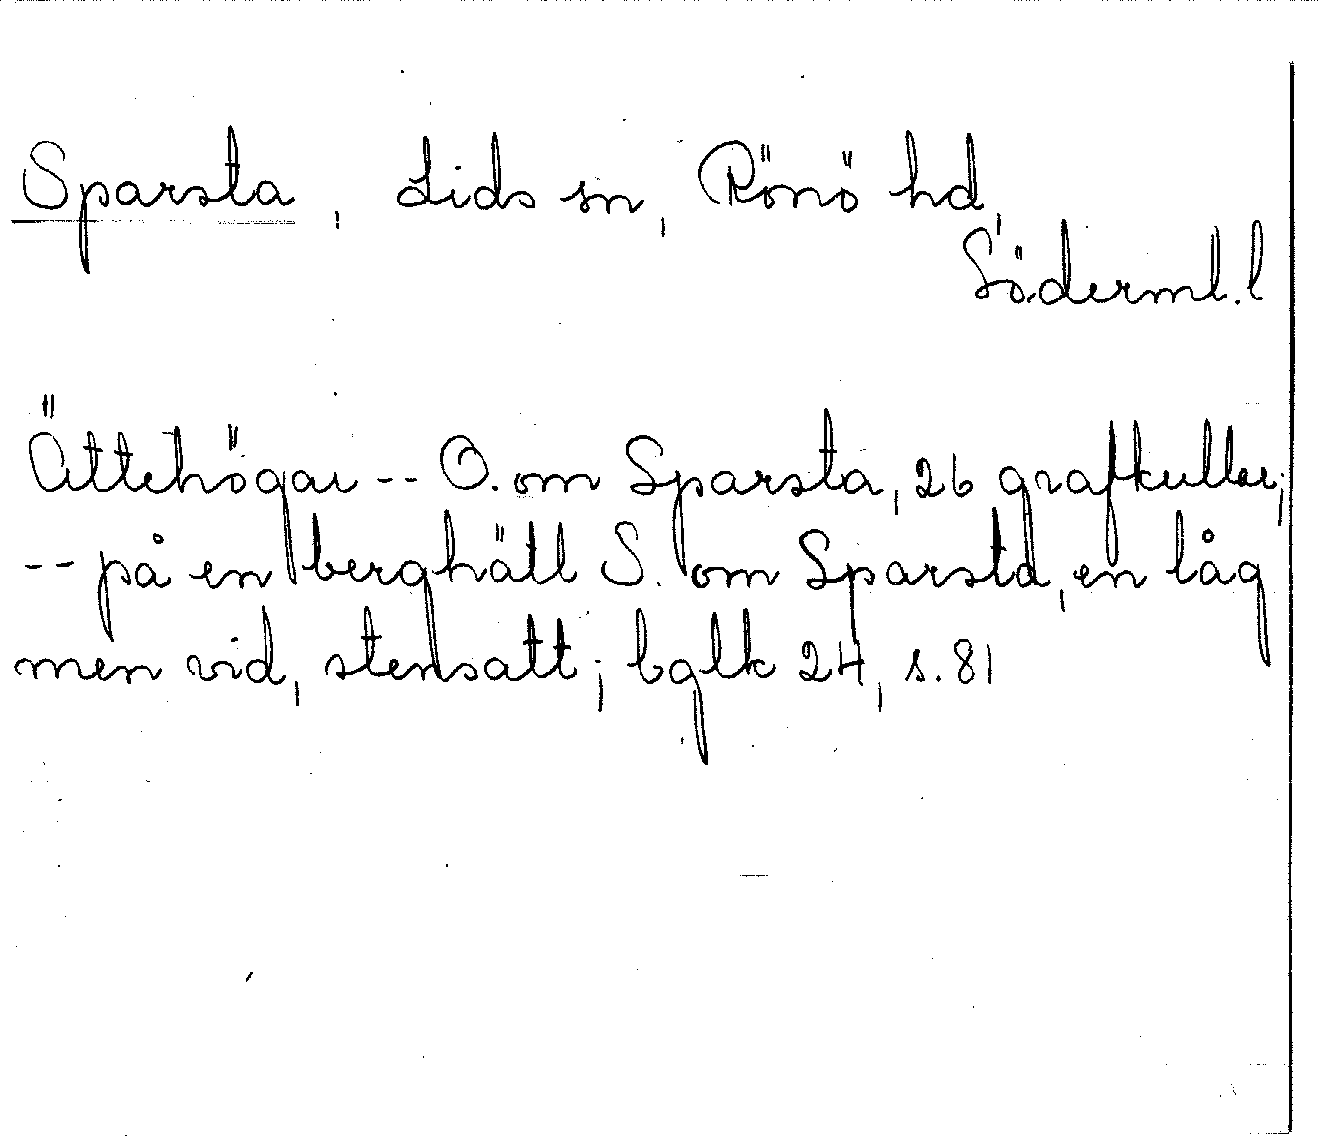 Sparsta, Lids sn, Rönö hd,
Söderml. l
Ättehögar -- O. om Sparsta, 26 grafkullar;
-- på en berghäll S. om Sparsta, en låg
men vid, stensatt; bglk 24, s. 81